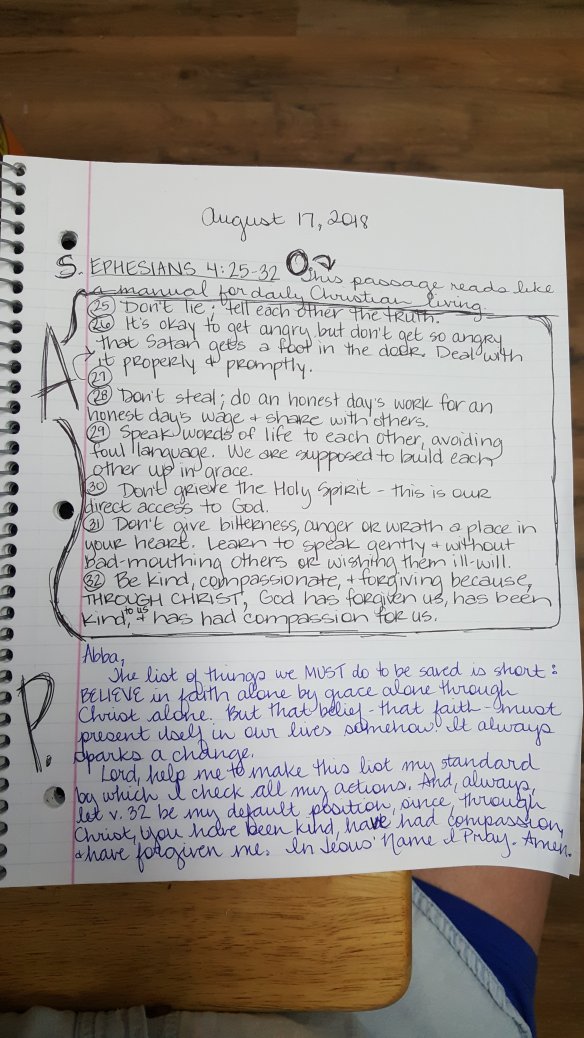 August 17, 2018
S. EPHESIANS 4:25-32 O → This passage reads like
a manual for daily Christian living.
A
(25) Don't lie; tell each other the truth.
(26) It's okay to get angry but don't get so angry
that Satan gets a foot in the door. Deal with
it properly & promptly.
(27)
(28) Don't steal; do an honest day's work for an
honest day's wage & share with others.
(29) Speak words of life to each other, avoiding
foul language. We are supposed to build each
other up in grace.
(30) Don't grieve the Holy Spirit - this is our
direct access to God.
(31) Don't give bitterness, anger or wrath a place in
your heart. Learn to speak gently & without
bad-mouthing others or wishing them ill-will.
(32) Be kind, compassionate, & forgiving because,
THROUGH CHRIST, God has forgiven us, has been
kind, to us & has had compassion for us.
P.
Abba,
The list of things we MUST do to be saved is short:
BELIEVE in faith alone by grace alone through
Christ alone. But that belief - that faith - must
present itself in our lives somehow. It always
sparks a change.
Lord, help me to make this list my standard
by which I check all my actions. And, always,
let v. 32 be my default position, since, through
Christ, You have been kind, have had compassion,
& have forgiven me. In Jesus' Name I Pray. Amen.